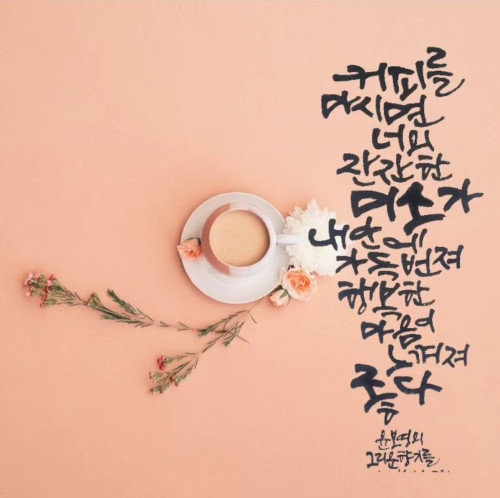 커피를
마시면
너의
잔잔한
미소가
내 안에
가득 번져
행복한
마음이
느껴져
좋다
윤보영의
그리운 향기를